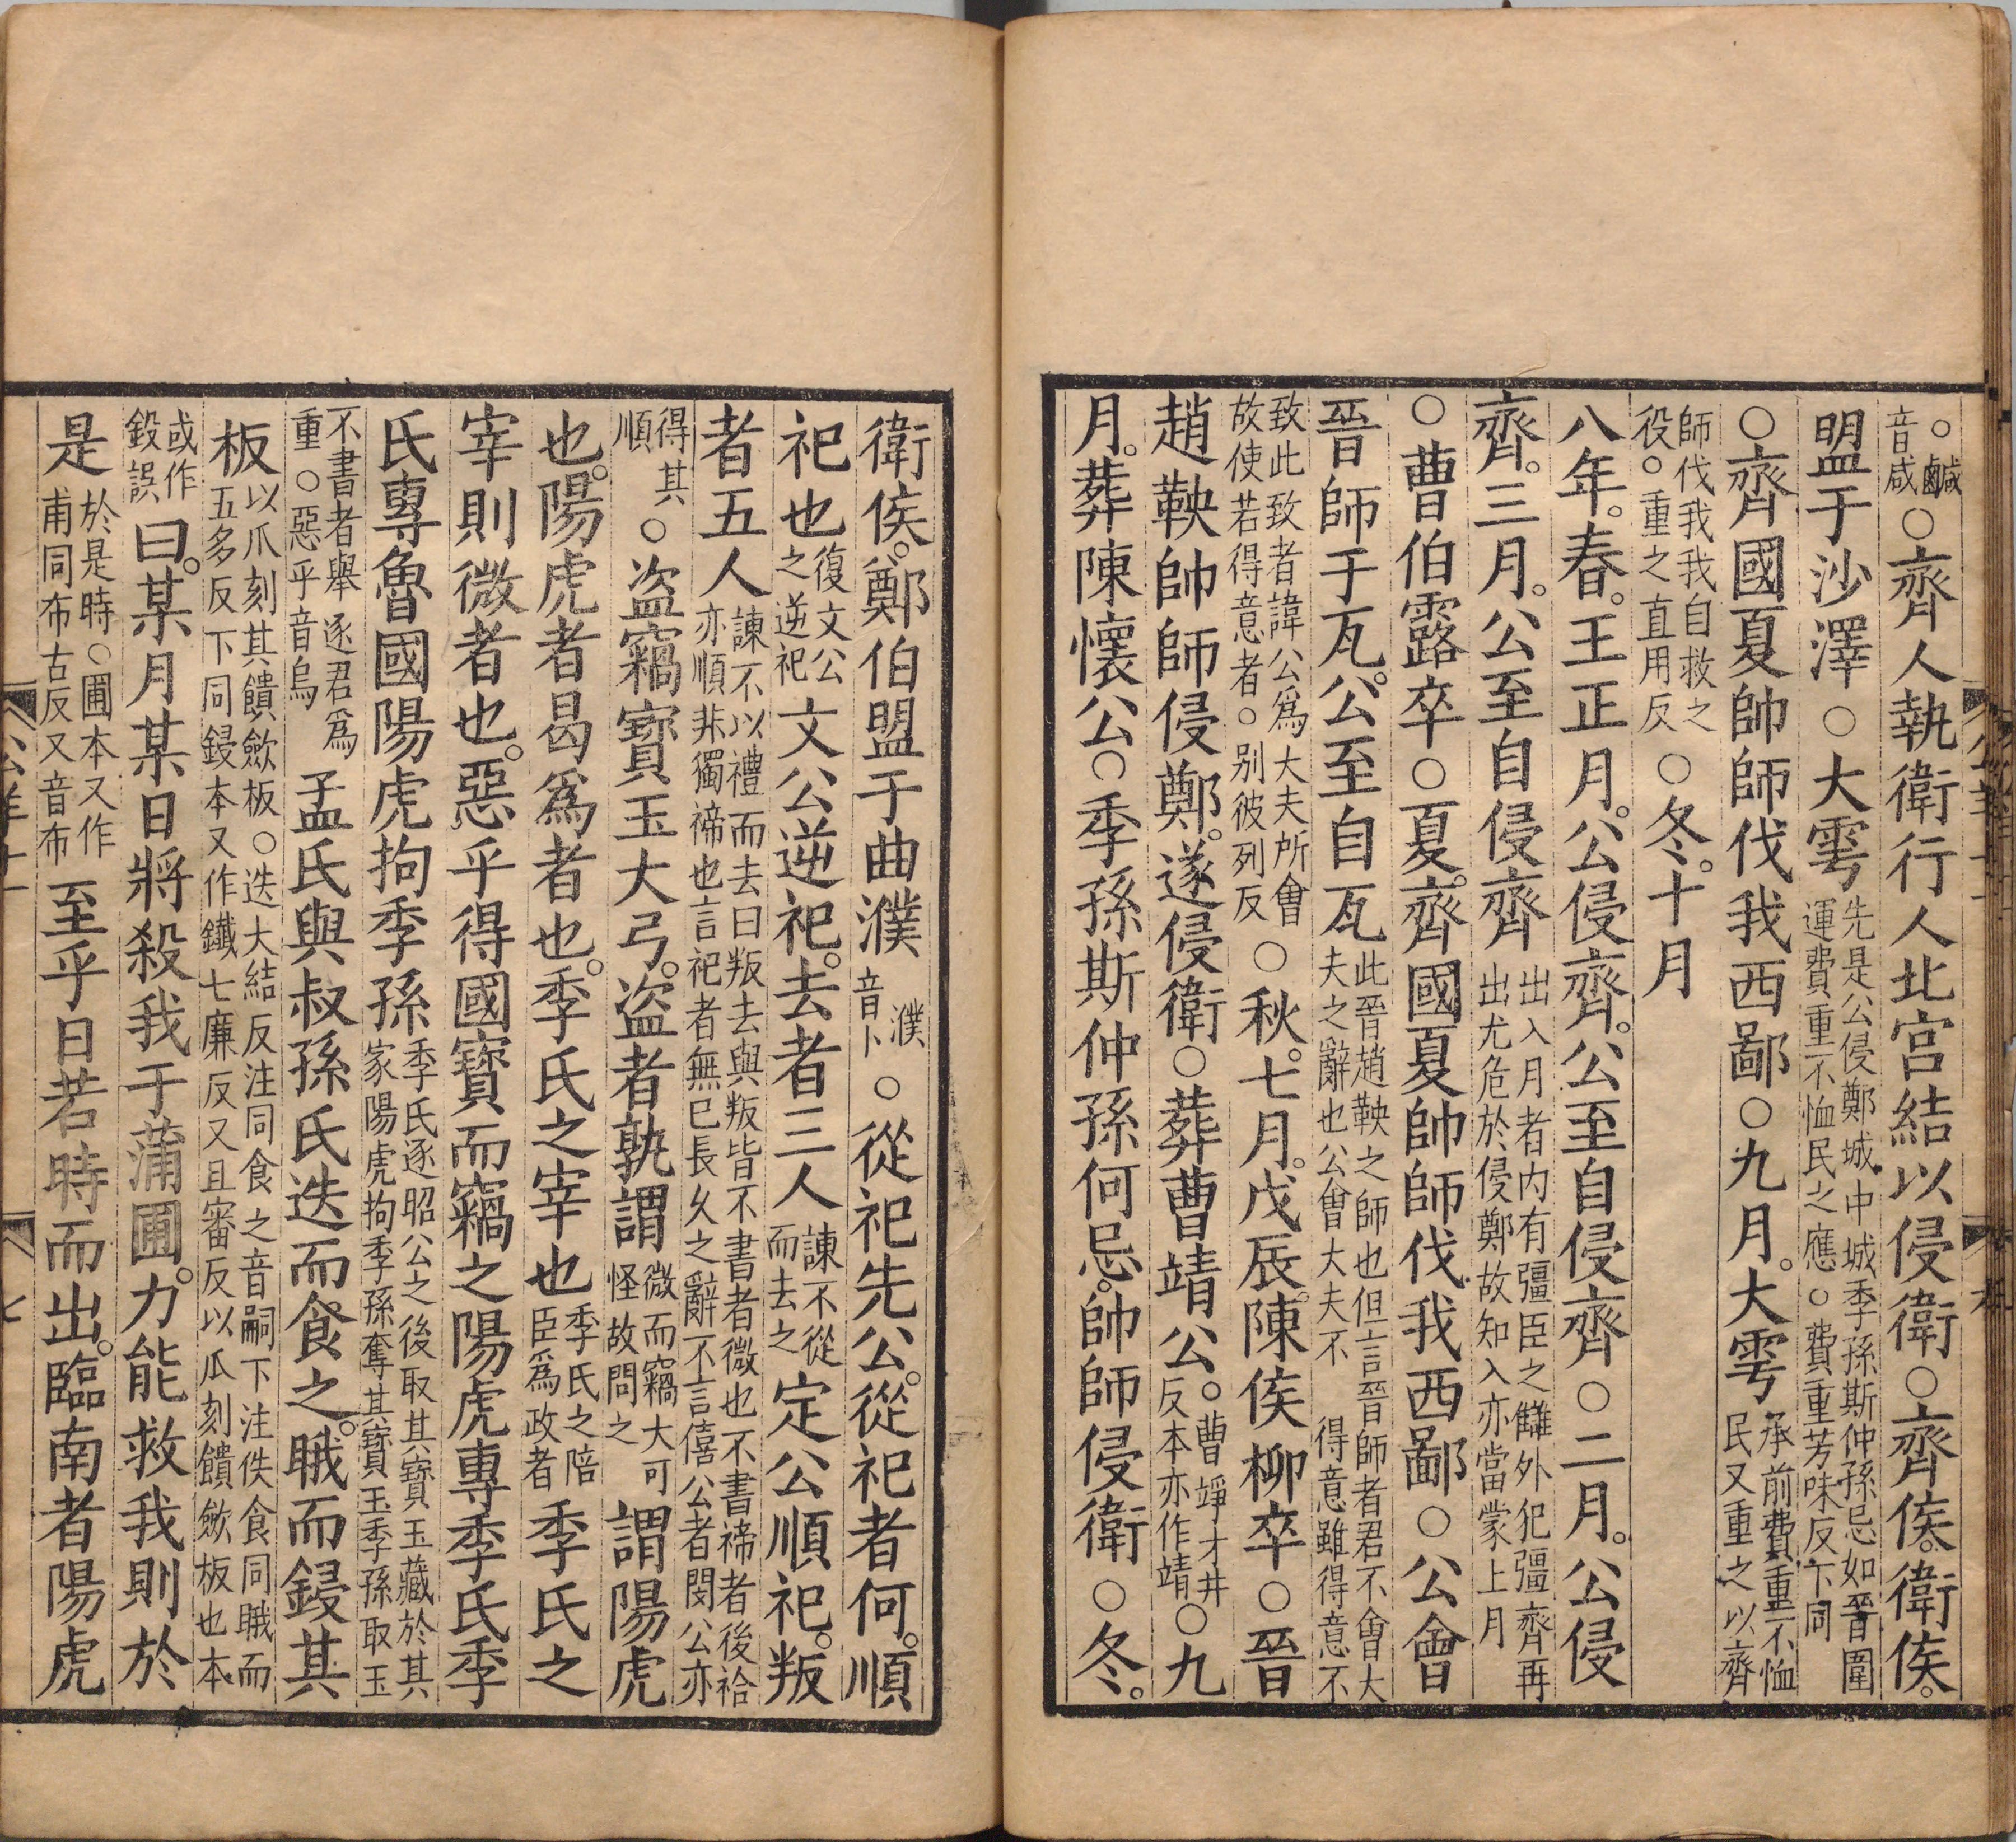 ○鹹音咸○齊人執衛行人北宮結以侵衛○齊侯。衛侯。
盟于沙澤○大雩先是公侵鄭城中城季孫斯仲孫忌如晉圍運費重不恤民之應○費重芳味反下同
○齊國夏帥師伐我西鄙○九月。大雩承前費重不恤民又重之以齊
師伐我我自救之役○重之直用反○冬。十月
八年。春。王正月。公侵齊。公至自侵齊○二月。公侵
齊。三月。公至自侵齊出入月者內有彊臣之讎外犯彊齊再出尤危於侵鄭故知入亦當蒙上月
○曹伯露卒○夏。齊國夏帥師伐我西鄙○公會
晉師于瓦。公至自瓦此晉趙鞅之師也但言晉師者君不會大夫之辭也公會大夫不得意雖得意不
致此致者諱公爲大夫所會故使若得意者○別彼列反○秋。七月。戊辰。陳侯柳卒○晉
趙鞅帥師侵鄭。遂侵衛○葬曹靖公。○曹竫才井反本亦作靖○九
月。葬陳懷公○季孫斯仲孫何忌。帥師侵衛○冬。
衛侯。鄭伯盟于曲濮濮音卜○從祀先公。從祀者何。順
祀也復文公之逆祀文公逆祀。去者三人諫不從而去之定公順祀。叛
者五人諫不以禮而去曰叛去與叛皆不書者微也不書禘者後祫亦順非獨禘也言祀者無已長久之辭不言僖公者閔公亦
得其順○盜竊寶玉大弓。盜者孰謂微而竊大可怪故問之謂陽虎
也。陽虎者曷爲者也。季氏之宰也季氏之陪臣爲政者季氏之
宰則微者也。惡乎得國寶而竊之陽虎專季氏季
氏專魯國陽虎拘季孫季氏逐昭公之後取其寶玉藏於其家陽虎拘季孫奪其寶玉季孫取玉
不書者舉逐君爲重○惡乎音烏孟氏與叔孫氏迭而食之。睋而鋟其
板以爪刻其饋歛板○迭大結反注同食之音嗣下注佚食同睋而五多反下同鋟本又作鐵七廉反又且審反以爪刻饋歛板也本
或作鍛誤曰。某月某日將殺我于蒲圃。力能救我則於
是於是時○圃本又作甫同布古反又音布至乎日若時而出。臨南者陽虎